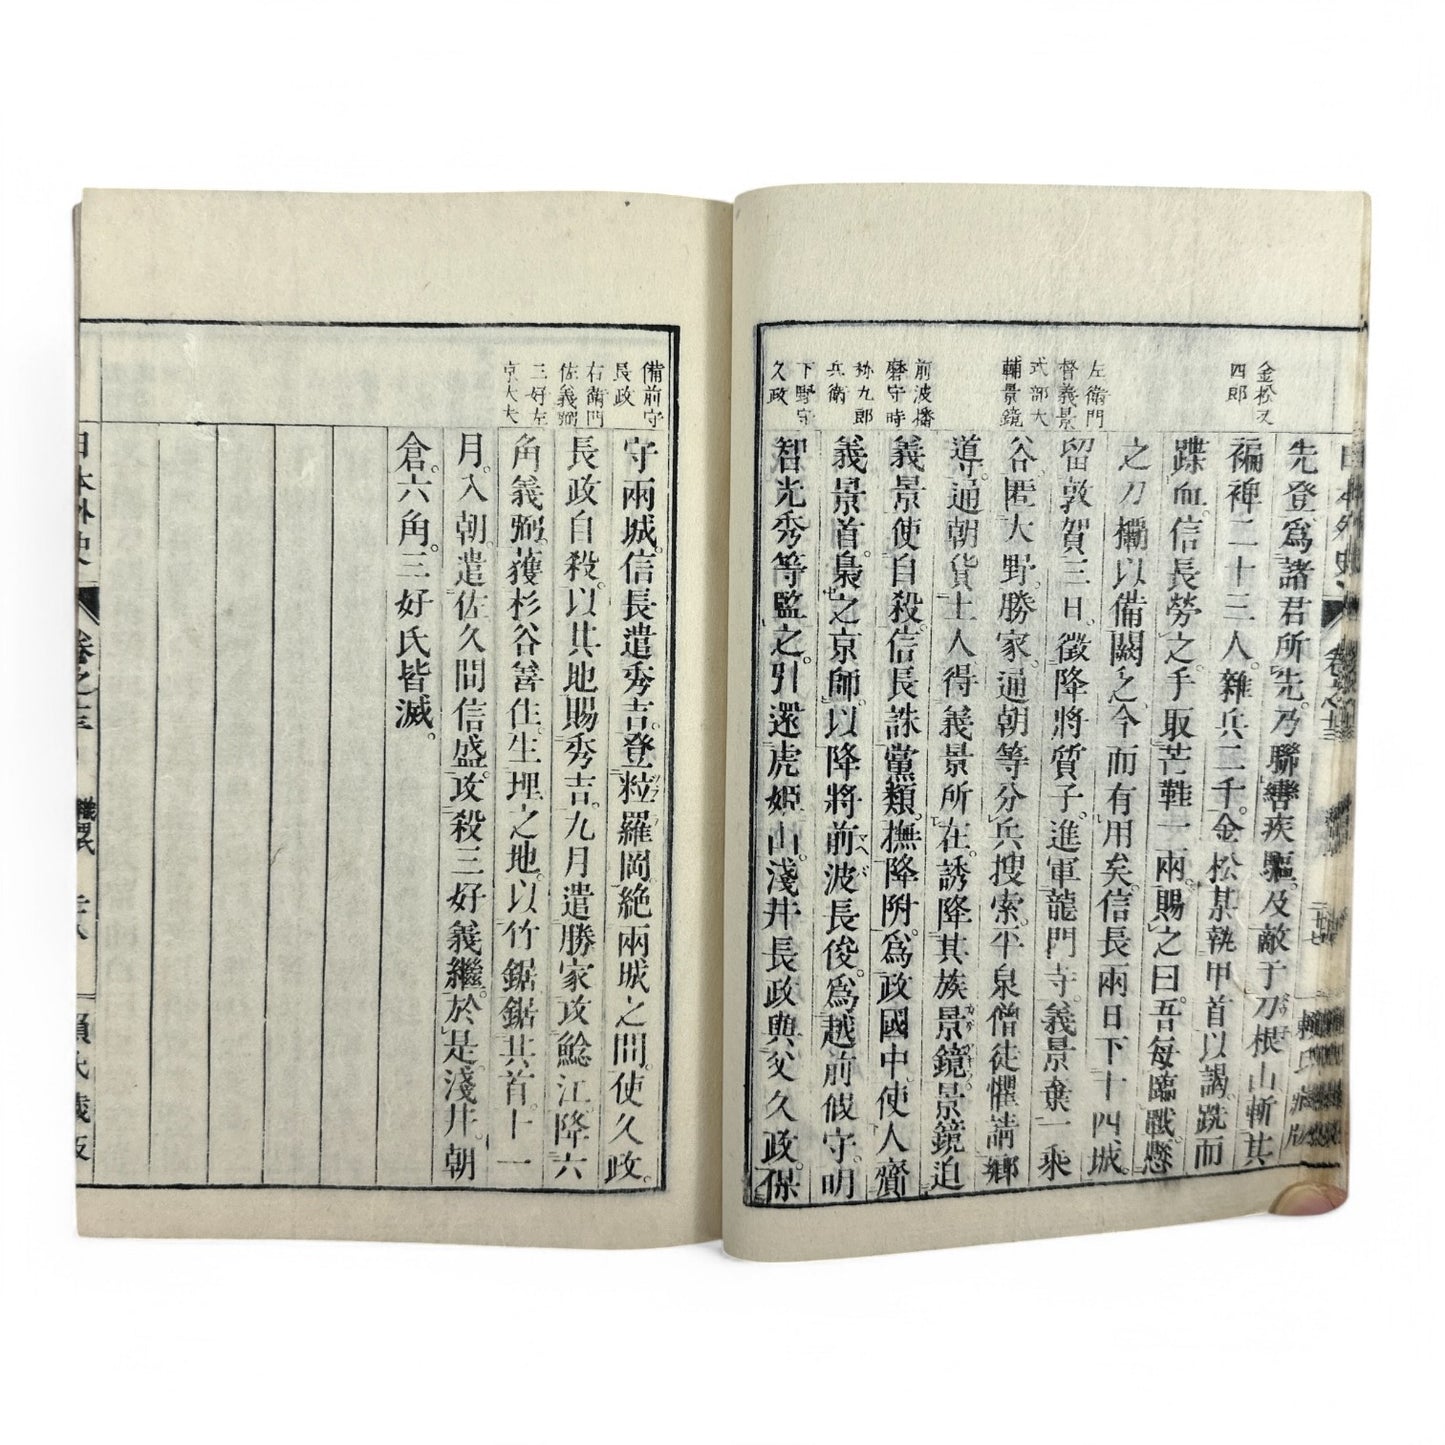 金松又
四郎
左衞門
督義景
式部大
輔景鏡
前波播
磨守時
孫九郎
兵衞
下野守
久政
先登爲諸君所先。乃聯轡疾驅。及敵于刀根山。斬其
褊裨二十三人。雜兵三千。金松某執甲首以謁。跣而
蹀血。信長勞之。手取芒鞋一兩。賜之曰。吾每臨戰。懸
之刀櫑以備闕乏。今而有用矣。信長兩日下十四城。
留敦賀三日。徵降將質子。進軍龍門寺。義景棄一乘
谷。匿大野。勝家通朝等分兵搜索。平泉僧徒懼請鄉
導。通朝貨土人得義景所在。誘降其族景鏡。景鏡迫
義景使自殺。信長誅黨類。撫降附。爲政國中。使人齎
義景首。梟之京師。以降將前波長俊。爲越前假守。明
智光秀等監之。引還虎姬山。淺井長政與父久政。保
備前守
長政
右衞門
佐義弼
三好左
京大夫
守兩城。信長遣秀吉。登粒羅岡絶兩城之間。使久政。
長政自殺。以其地賜秀吉。九月遣勝家攻鯰江。降六
角義弼。獲杉谷善住。生埋之地。以竹鋸鋸其首。十一
月。入朝。遣佐久間信盛。攻殺三好義繼。於是。淺井。朝
倉。六角。三好氏皆滅。
日本外史
卷之十三
織田氏
賴氏藏版